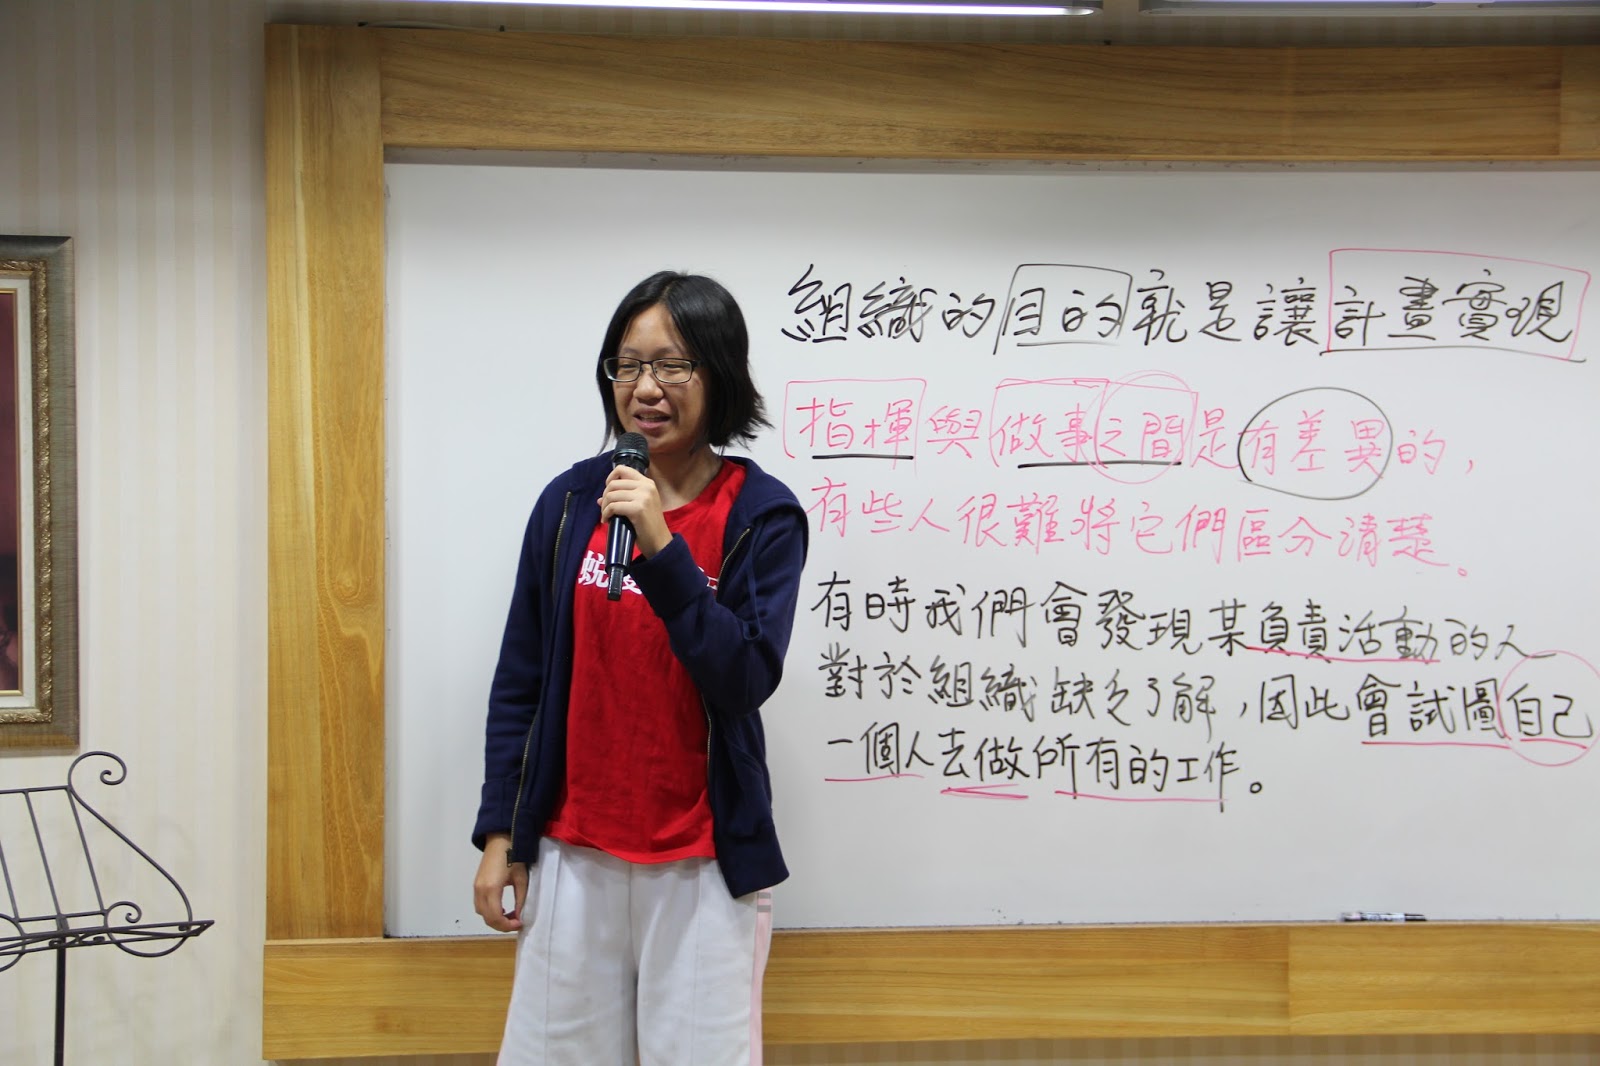 組織的目的就是讓計畫實現
指揮與做事之間是有差異的，
有些人很難將它們區分清楚。
有時我們會發現某負責活動的人
對於組織缺乏了解，因此會試圖自己
一個人去做所有的工作。
蛻變